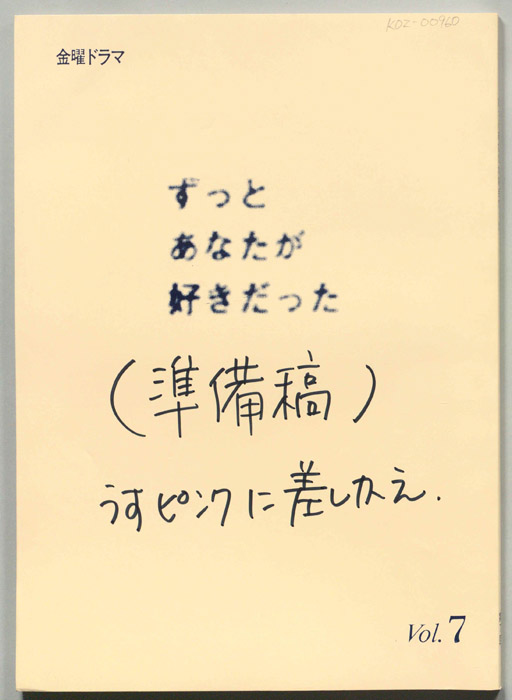 KDZ-00960
金曜ドラマ
ずっと
あなたが
好きだった
(準備稿)
うすピンクに差しかえ.
Vol. 7